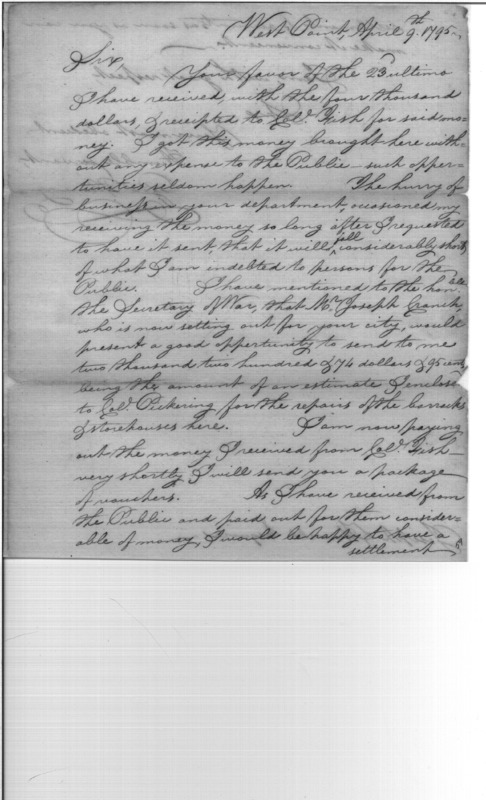 West Point, April 9th. 1795.
Sir,
Your favor of the 23d ultimo
I have received, with the four thousand
dollars, & receipted to Colo. Fish for said mo=
ney. I got this money brought here with=
out any expense to the Public — such oppor=
tunities seldom happen. The hurry of
business in your department, occasioned my
receiving the money so long after I requested
to have it sent, that it will fall considerably short
of what I am indebted to persons for the
Public. I have mentioned to the honble.
the Secretary of War, that Mr. Joseph Cranch,
who is now setting out for your city, would
present a good opportunity to send to me
two thousand two hundred & 74 dollars & 95 cents
being the amount of an estimate I enclosed
to Colo. Pickering for the repairs of the barracks
& storehouses here. I am now paying
out the money I received from Colo. Fish —
very shortly I will send you a package
of vouchers. As I have received from
the Public and paid out for them consider=
able of money, I would be happy to have a
settlement